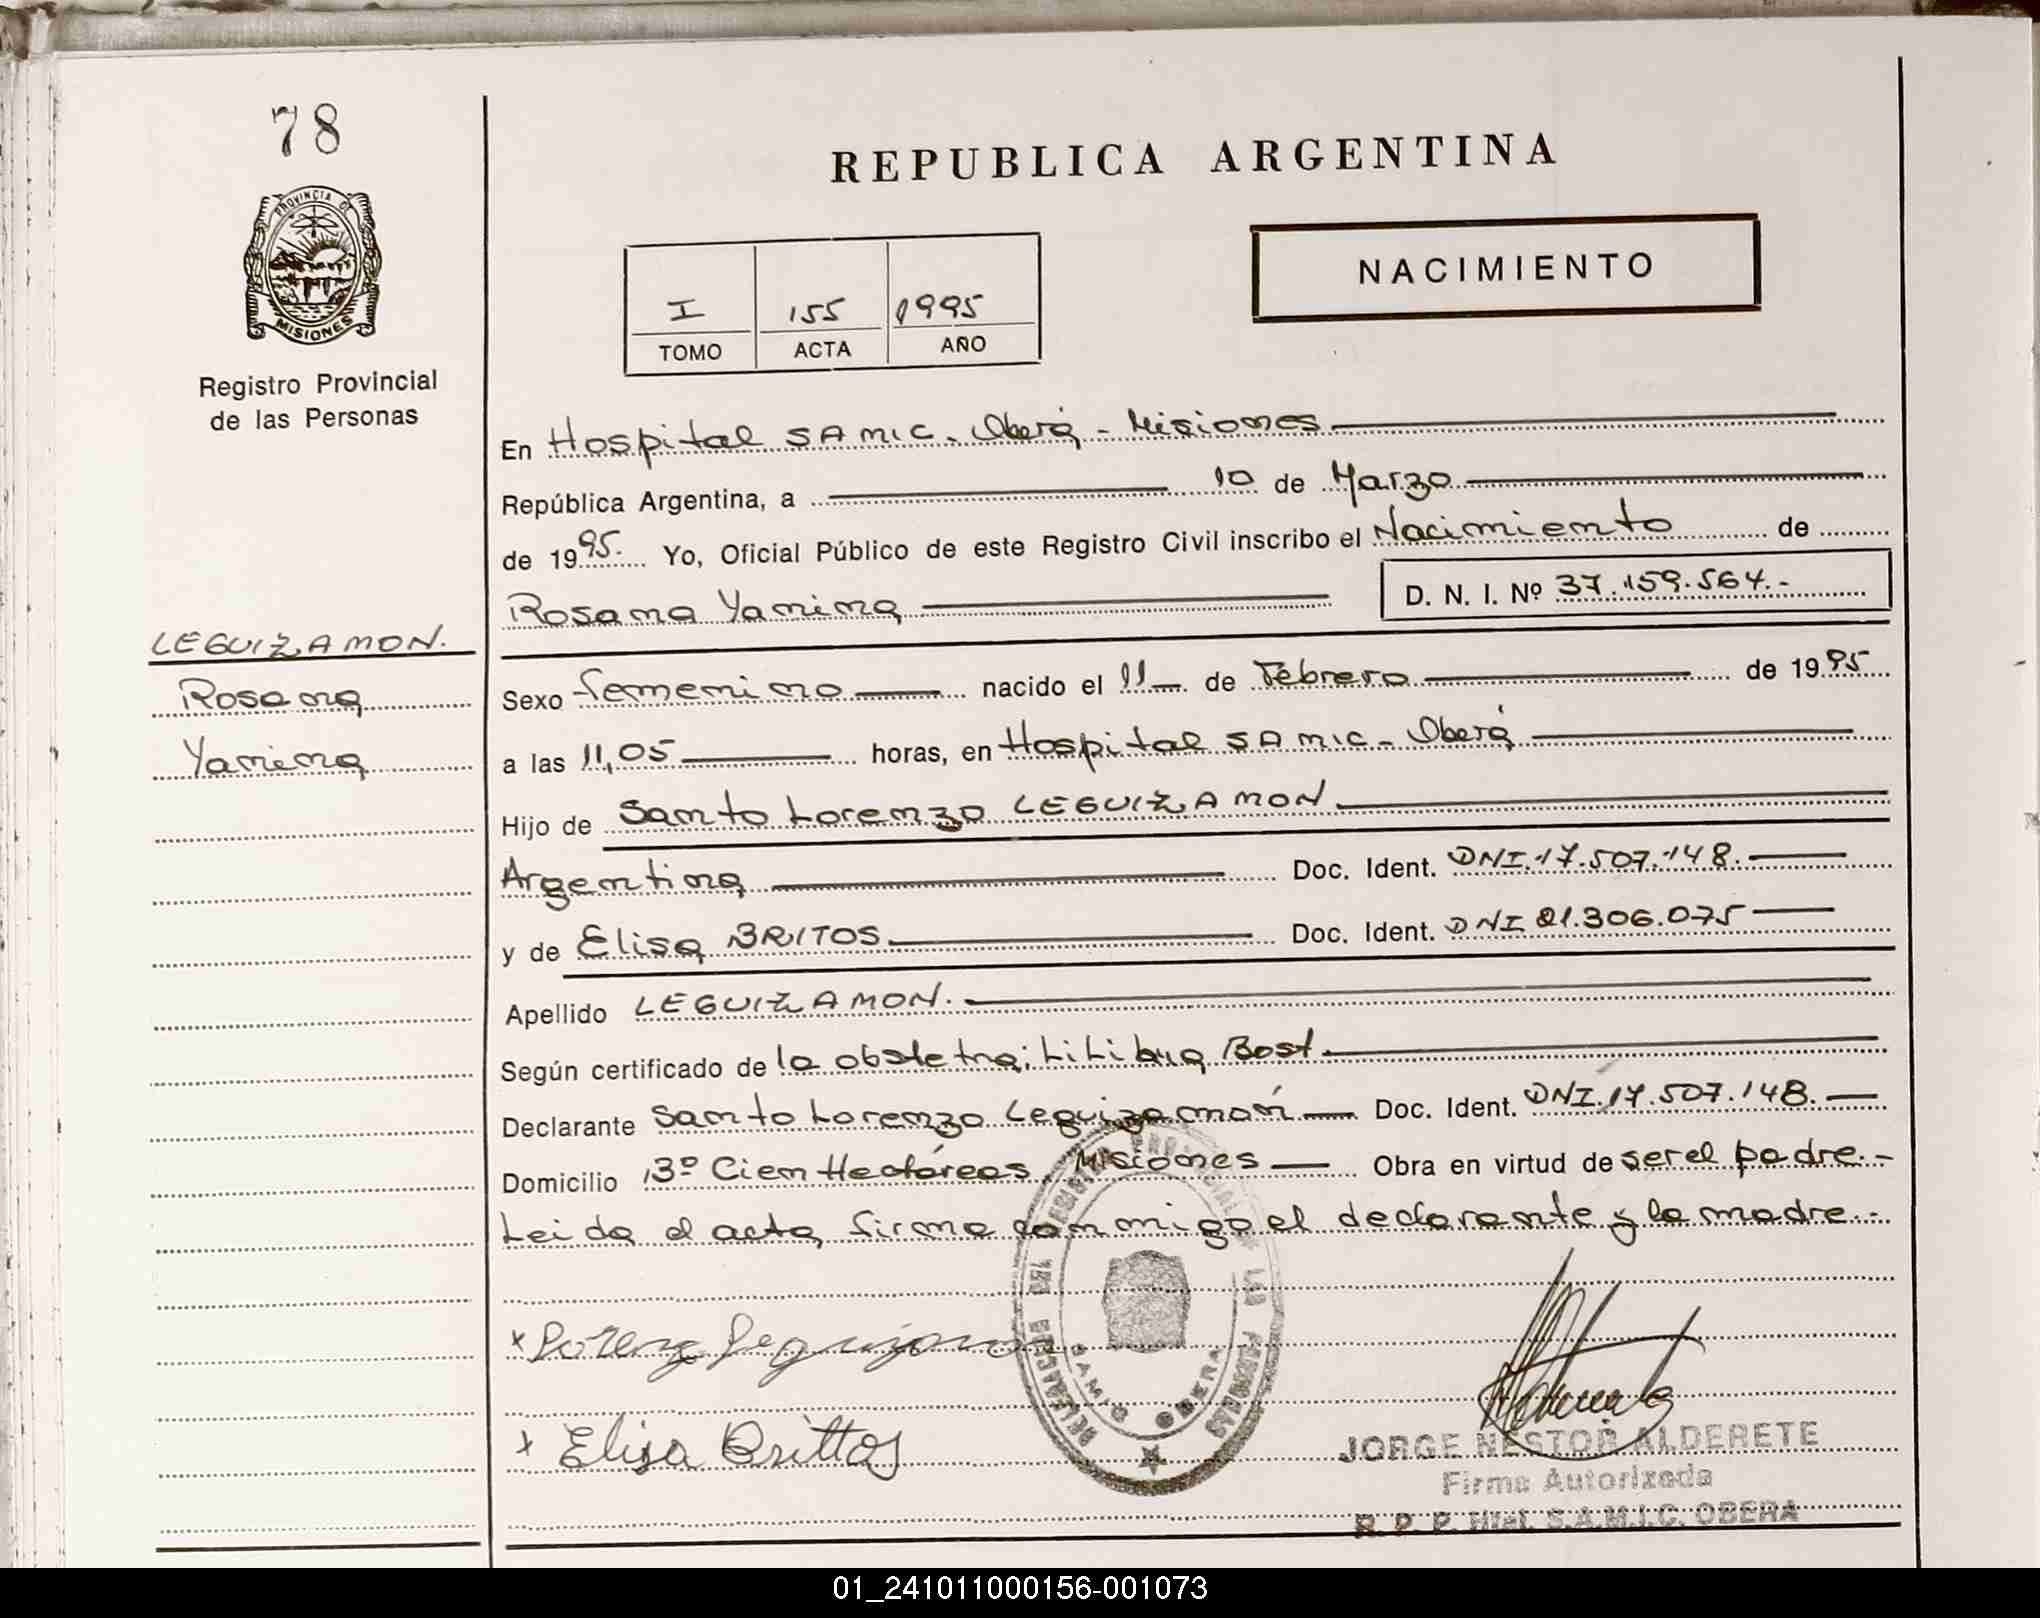 78
PROVINCIA DE
MISIONES
Registro Provincial
de las Personas
REPUBLICA ARGENTINA
NACIMIENTO
I 155 1995
TOMO ACTA AÑO
En Hospital SAMIC. Oberá - Misiones
República Argentina, a 10 de Marzo
de 1995. Yo, Oficial Público de este Registro Civil inscribo el Nacimiento de
Rosana Yanina D. N. I. Nº 37.159.564.-
LEGUIZAMON.
Rosana
Yanina
Sexo femenino nacido el 11 de Febrero de 1995
a las 11,05 horas, en Hospital SAMIC - Oberá
Hijo de Santo Lorenzo LEGUIZAMON
Argentina Doc. Ident. DNI.17.507.148.
y de Elisa BRITOS Doc. Ident. DNI 21.306.075
Apellido LEGUIZAMON.
Según certificado de la obstetra; Bost
Declarante Santo Lorenzo Leguizamón Doc. Ident. DNI.17.507.148.
Domicilio 3º Cien Hectáreas Misiones Obra en virtud de ser el padre.-
Leida el acta, firma conmigo el declarante y la madre.-
x Lorenzo Leguizamon
x Elisa Brittos
DELEGACION DEL REGISTRO PROVINCIAL DE LAS PERSONAS
SAMIC OBERA
JORGE NESTOR ALDERETE
Firma Autorizada
R. P. P. Htal. S.A.M.I.C. OBERA
01_241011000156-001073